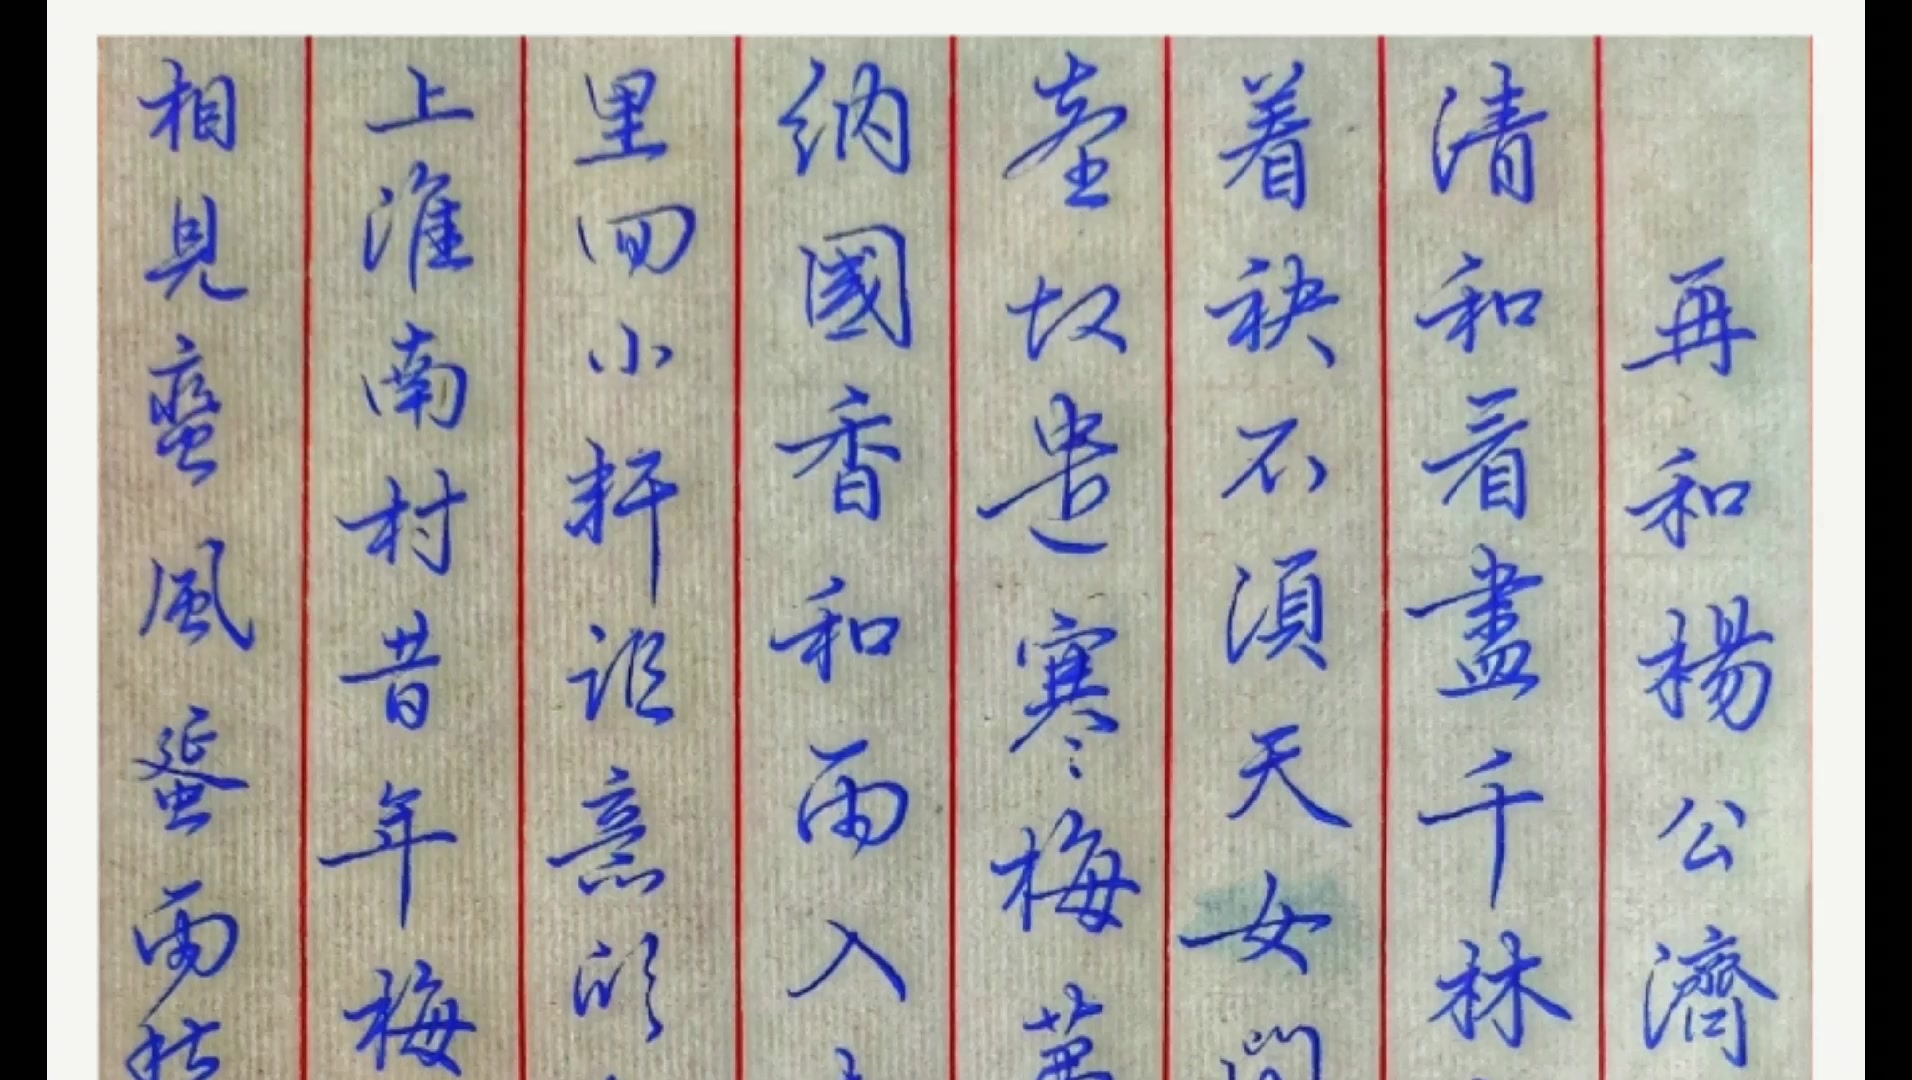 再和楊公濟
清和看盡千林
着袂不須天女問
臺故遣寒梅
納國香和雨入
里回小軒 意
上淮南村昔年梅
相見蠻風蜑雨